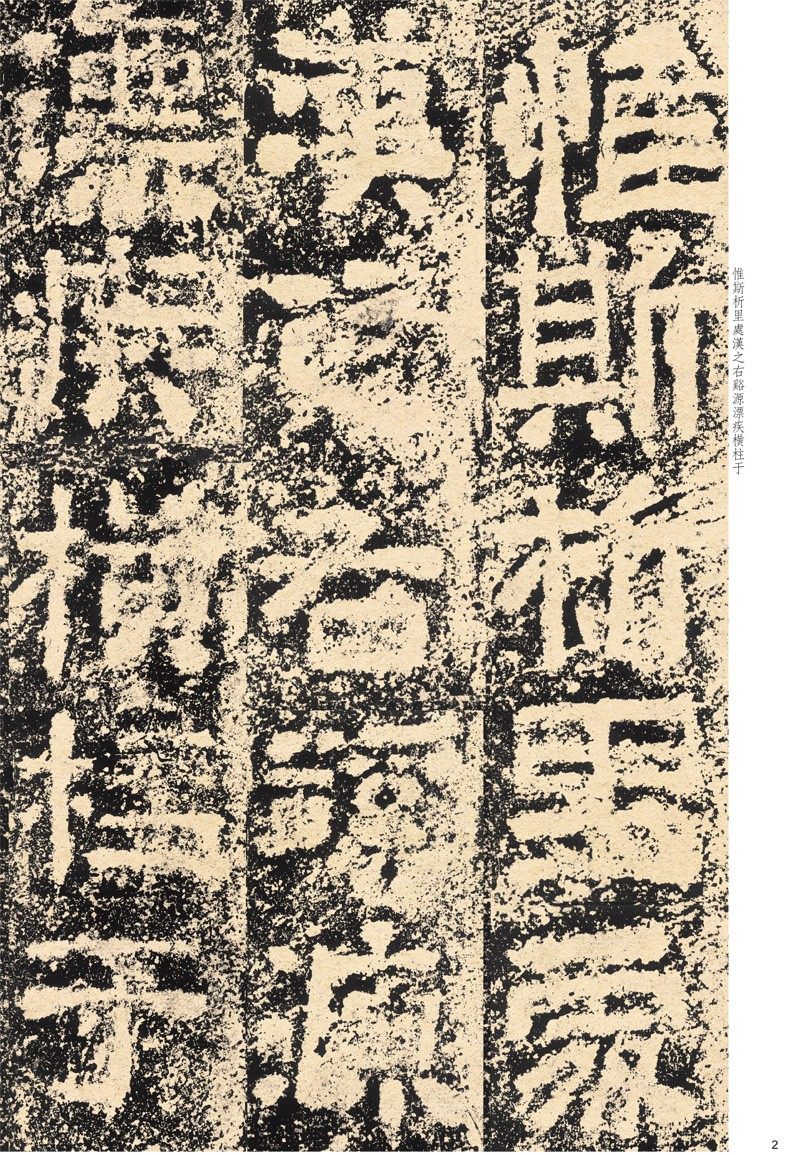 惟斯析里處漢之右谿源漂疾橫柱于
惟斯析里處
漢之右谿源
漂疾橫柱于
2